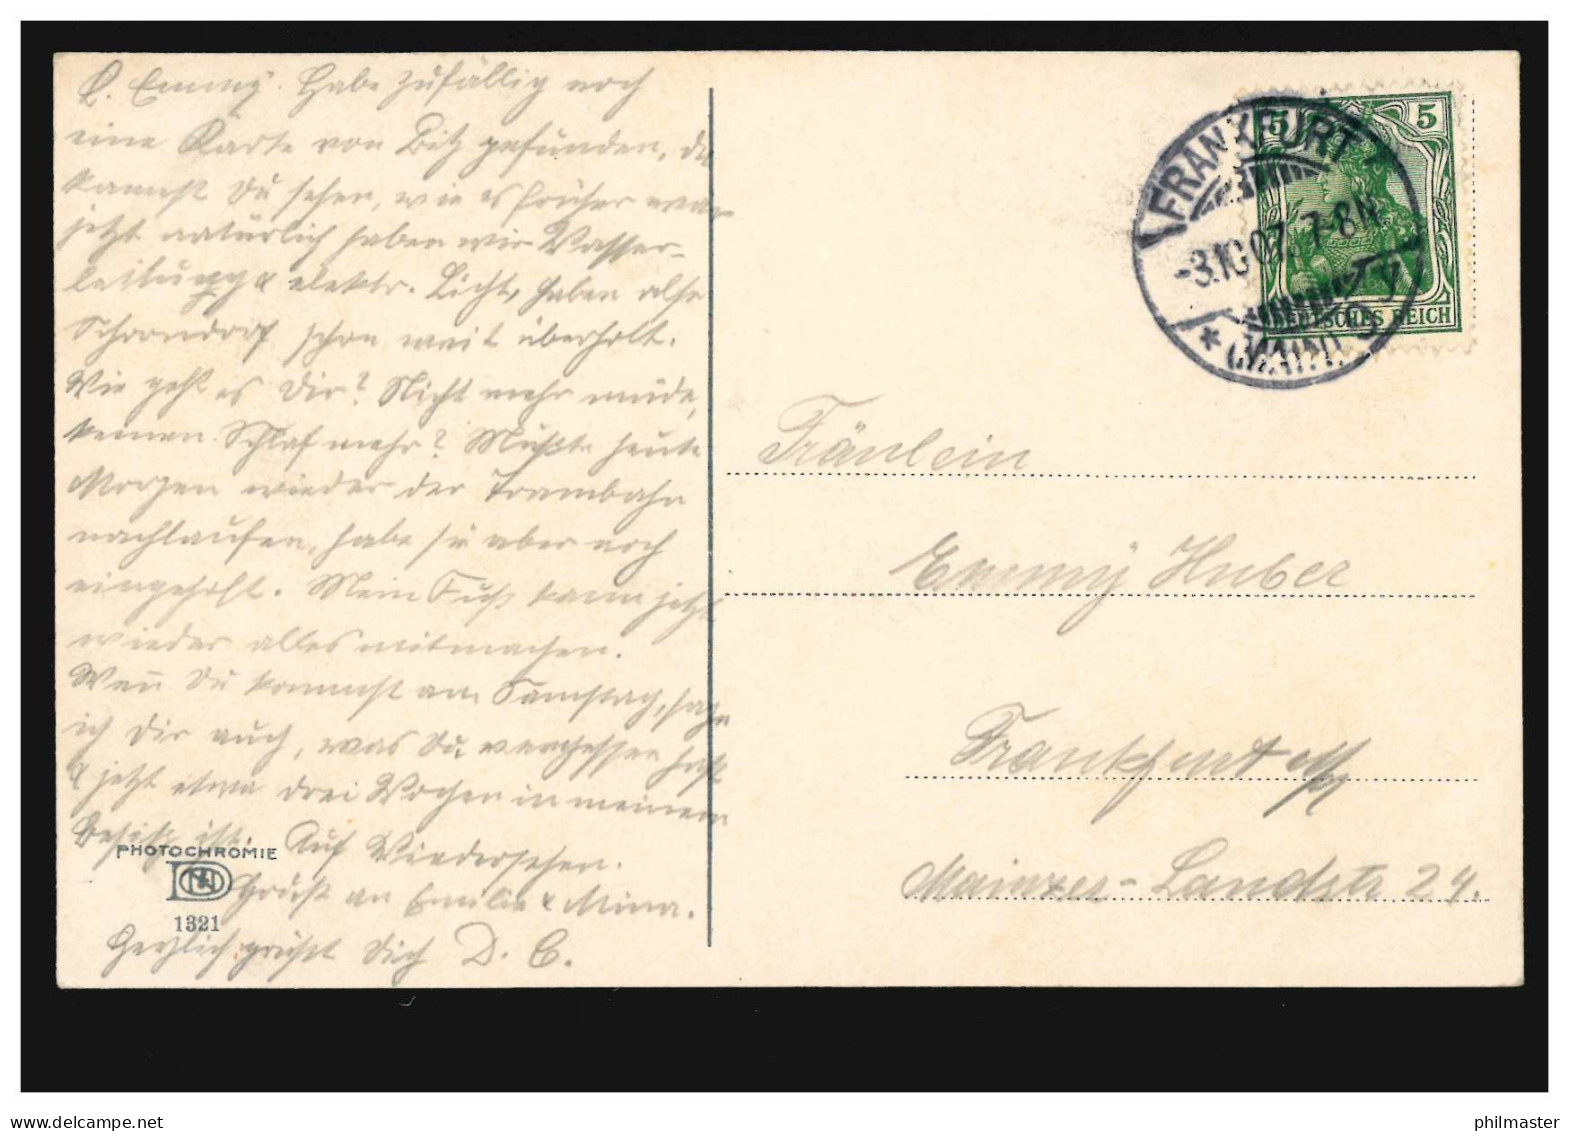 L. Emmÿ. Habe zufällig noch
eine Karte von Bitz gefunden, da
kannst Du sehen, wie es früher war
jetzt natürlich haben wir Wasser-
leitung & elektr. Licht, haben also
Schorndorf schon weit überholt.
Wie geht es Dir? Nicht mehr müde,
keinen Schlaf mehr? Mußte heute
Morgen wieder der Trambahn
nachlaufen, habe sie aber noch
eingeholt. Mein Fuß kann jetzt
wieder alles mitmachen.
Wenn Du kommst am Samstag, sage
ich Dir auch, was Du vergessen hast
& jetzt etwa drei Wochen in meinem
Besitz ist. Auf Wiedersehen.
Gruß an Emilie & Mina.
Herzlich grüßt Dich D. C.
PHOTOCHROMIE
1321
FRANKFURT
-3.10.07. 7-8N
* (MAIN) 9
5 5
DEUTSCHES REICH
Fräulein
Emmÿ Huber
Frankfurt a/M
Mainzer-Landstr 24.
philmaster
www.delcampe.net